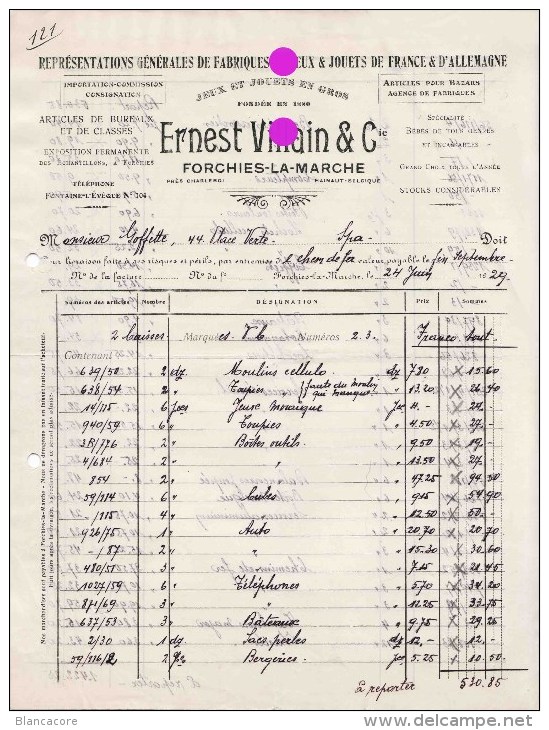 121
REPRÉSENTATIONS GÉNÉRALES DE FABRIQUES JEUX & JOUETS DE FRANCE & D'ALLEMAGNE
JEUX ET JOUETS EN GROS
FONDÉE EN 1880
Ernest Villain & Cie
FORCHIES-LA-MARCHE
PRÈS CHARLEROI HAINAUT-BELGIQUE
IMPORTATION-COMMISSION
CONSIGNATION
ARTICLES DE BUREAUX
ET DE CLASSES
EXPOSITION PERMANENTE
DES ÉCHANTILLONS, À FORCHIES
TÉLÉPHONE
FONTAINE-L'ÉVÊQUE N° 104
ARTICLES POUR BAZARS
AGENCE DE FABRIQUES
SPÉCIALITÉ
BÉBÉS DE TOUS GENRES
ET INCASSABLES
GRAND CHOIX TOUTE L'ANNÉE
STOCKS CONSIDÉRABLES
Monsieur Goffette, 44 Place Verte. Spa. Doit
un livraison faite à ses risques et périls, par entremise de chem de fer valeur payable le fin Septembre
N° de la facture N° du f° Forchies-la-Marche, le 24 Juin 1929.
Numéros des articles Nombre DÉSIGNATION Prix Sommes
2 Caisses Marques Numéros 2.3. Franco tout.
Contenant
639/50 2 dz Moulins cellulo dz 7.80 15.60
638/54 2 " Toupies (sauts du Moulin qui manque) " 13.20 26.40
14/115 6 pces pce 4.- 24.-
940/59 6 " Toupies " 4.50 27.-
3R/776 2 " Boîtes outils " 9.50 19.-
4/684 2 " " 13.50 27.-
854 - 2 " " 47.25 94.50
59/114 6 " Cubes " 9.15 54.90
-/115 4 " " 12.50 50.-
926/75 1 " Auto " 20.70 20.70
-/87 2 " " " 15.30 30.60
480/51 3 " " " 7.15 21.45
1027/59 6 " Téléphones " 5.70 34.20
871/69 3 " " " 11.25 33.75
637/53 3 " Bâteaux " 9.75 29.25
2/30 1 dz Sacs perles dz 12.- 12.-
59/116/2 2 pces Bergeries pce 5.25 10.50
à reporter 530.85
Blancacore
www.delcampe.net